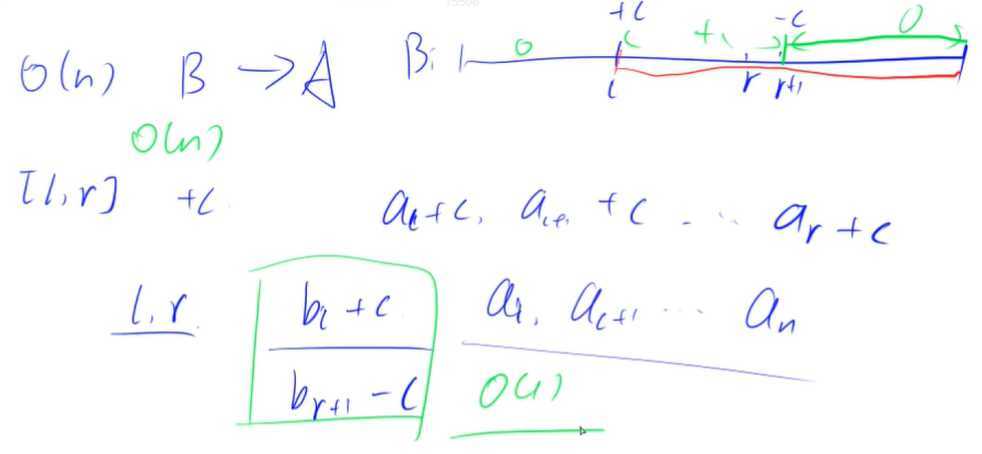 +c -c 0
O(n) B → A B: 0 +c
l r r+1
O(n)
[l, r] +c
a_l+c, a_{l+1}+c ... a_r+c
l, r b_l+c a_l, a_{l+1} ... a_n
b_{r+1}-c O(1)